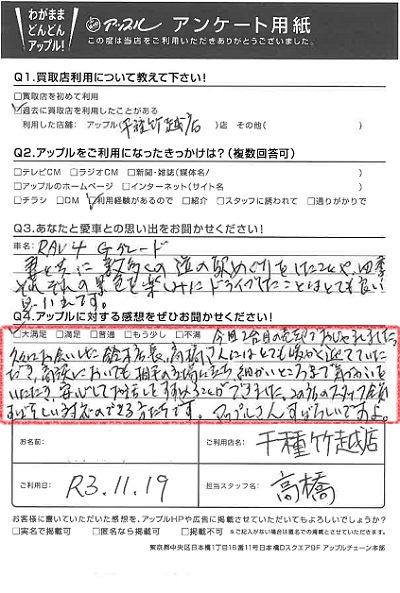 わがまま
どんどん
アップル!
アップル アンケート用紙
この度は当店をご利用いただきありがとうございました。
Q1.買取店利用について教えて下さい!
□買取店を初めて利用
☑過去に買取店を利用したことがある
利用した店舗: アップル(千種竹越店)店 その他( )
Q2.アップルをご利用になったきっかけは?(複数回答可)
□テレビCM □ラジオCM □新聞・雑誌(媒体名/ )
□アップルのホームページ □インターネット(サイト名 )
□チラシ □DM ☑利用経験があるので □紹介 □スタッフに誘われて □通りがかりで
Q3.あなたと愛車との思い出をお聞かせください!
車名: RAV4 Gグレード
妻と共に数多くの道の駅めぐりをしたことや、四季
それぞれの景色を楽しみにドライブしたことはとても良い
思い出です。
Q4.アップルに対する感想をぜひお聞かせください!
☑大満足 □満足 □普通 □もう少し □不満 今回2台目の売却でおじゃましました。
さんにはとても
だき、商談においても相手の立場に立ち、細かいところまで気づかい
いただき、安心してお話しもすすめることができました。
すばらしい対応のできる方たちです。アップルさんすばらしいですよ。
お名前:
ご利用店名: 千種竹越店
ご利用日: R3.11.19
担当スタッフ名: 高橋
お客様に書いていただいた感想を、アップルHPや広告に掲載させていただいてもよろしいでしょうか?
□実名で掲載可 □匿名なら掲載可 □掲載不可 ※ご記入がない場合は匿名での掲載とさせていただきます。
東京都中央区日本橋1丁目16番11号日本橋Dスクエア9F アップルチェーン本部